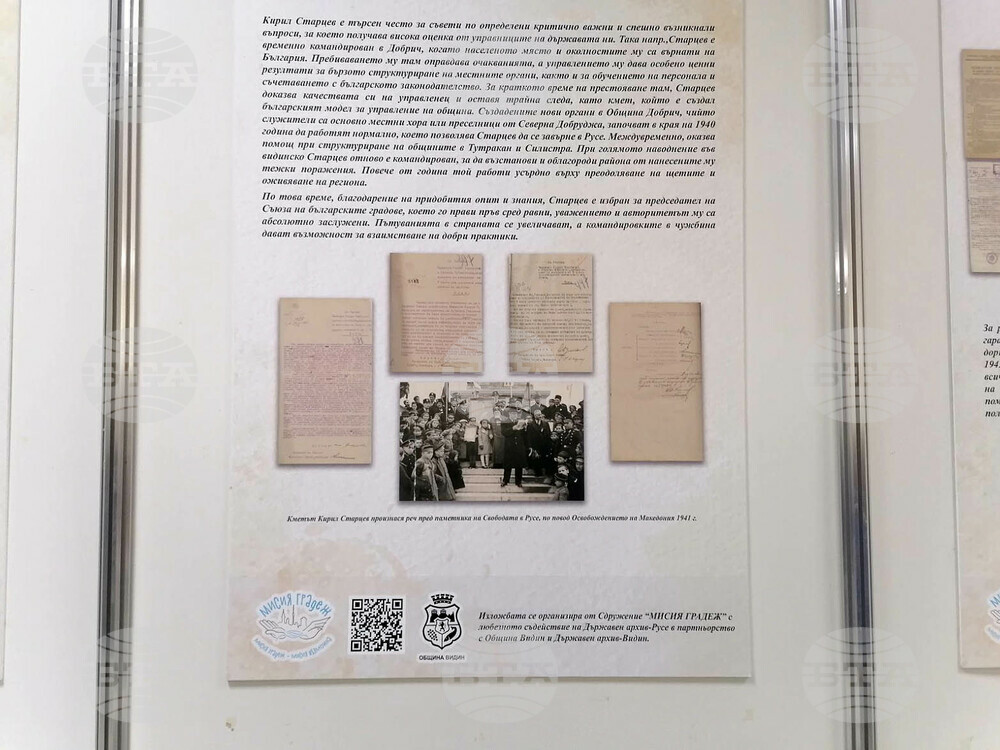 Кирил Старцев е търсен често за съвети по определени критично важни и спешно възникнали
въпроси, за което получава висока оценка от управниците на държавата ни. Така напр.,Старцев е
временно командирован в Добрич, когато населеното място и околностите му са върнати на
България. Пребиваването му там оправдава очакванията, а управлението му дава особено ценни
резултати за бързото структуриране на местните органи, както и за обучението на персонала и
съчетаването с българското законодателство. За краткото време на престояване там, Старцев
доказва качествата си на управленец и оставя трайна следа, като кмет, който е създал
българският модел за управление на община. Създадените нови органи в Община Добрич, чийто
служители са основно местни хора или преселници от Северна Добруджа, започват в края на 1940
година да работят нормално, което позволява Старцев да се завърне в Русе. Междувременно, оказва
помощ при структуриране на общините в Тутракан и Силистра. При голямото наводнение във
видинско Старцев отново е командирован, за да възстанови и облагороди района от нанесените му
тежки поражения. Повече от година той работи усърдно върху преодоляване на щетите и
оживяване на региона.
По това време, благодарение на придобития опит и знания, Старцев е избран за председател на
Съюза на българските градове, което го прави пръв сред равни, уважението и авторитетът му са
абсолютно заслужени. Пътуванията в страната се увеличават, а командировките в чужбина
дават възможност за взаимстване на добри практики.
Кметът Кирил Старцев произнася реч пред паметника на Свободата в Русе, по повод Освобождението на Македония 1941 г.
МИСИЯ ГРАДЕЖ
ОБЩИНА ВИДИН
Изложбата се организира от Сдружение “МИСИЯ ГРАДЕЖ” с
любезното съдействие на Държавен архив-Русе в партньорство
с Община Видин и Държавен архив-Видин.
За
194
на
BTA